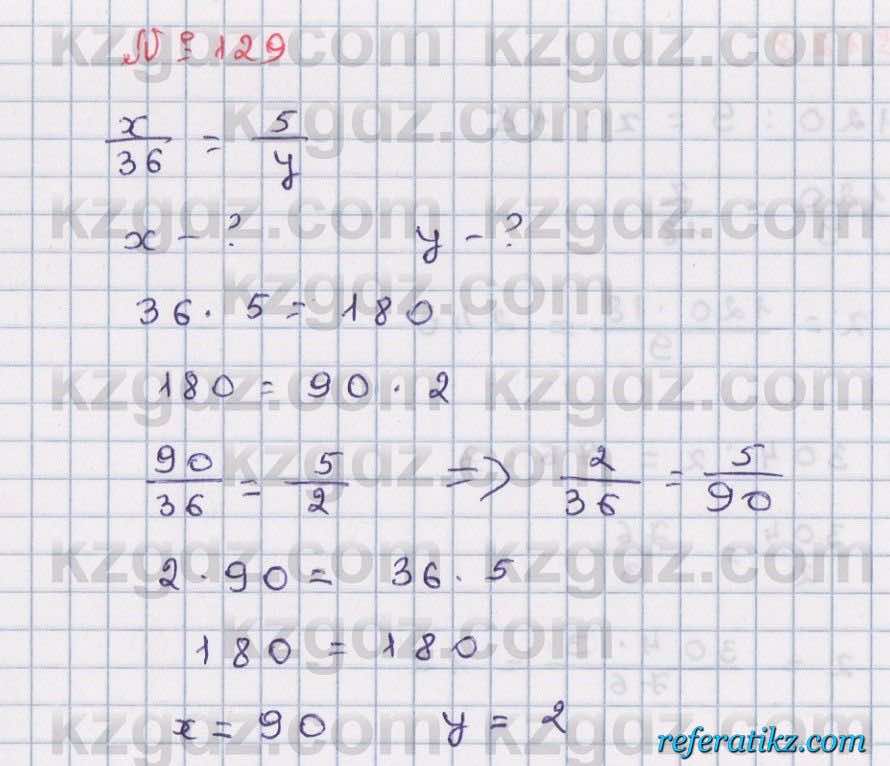 №129
x/36 = 5/y
x - ? y - ?
36 · 5 = 180
180 = 90 · 2
90/36 = 5/2 => 2/36 = 5/90
2 · 90 = 36 · 5
180 = 180
x = 90 y = 2
kzgdz.com kzgdz.com
kzgdz.com kzgdz.com
kzgdz.com kzgdz.com
kzgdz.com kzgdz.com
kzgdz.com kzgdz.com
referatikz.com